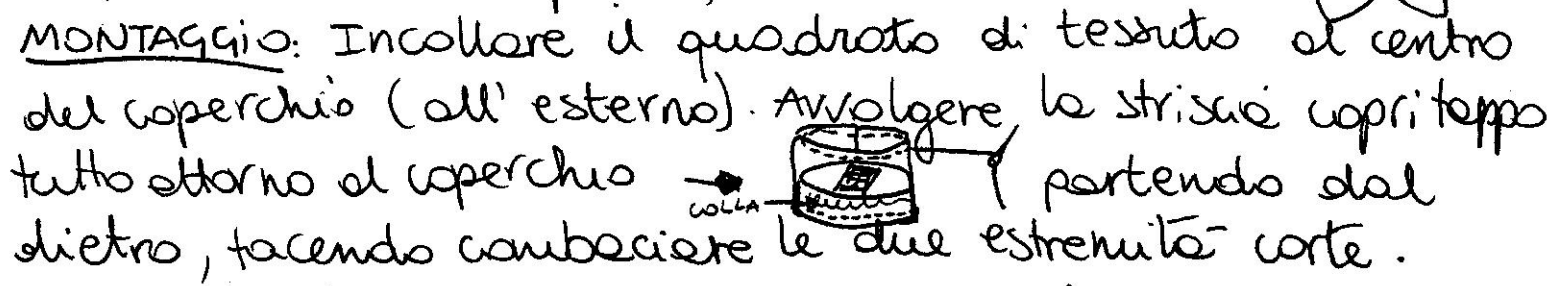 MONTAGGiO: Incollare il quadrato di tessuto al centro
del coperchio (all' esterno). Avvolgere la striscia copritappo
tutto attorno al coperchio partendo dal
COLLA
dietro, facendo combaciare le due estremità corte.